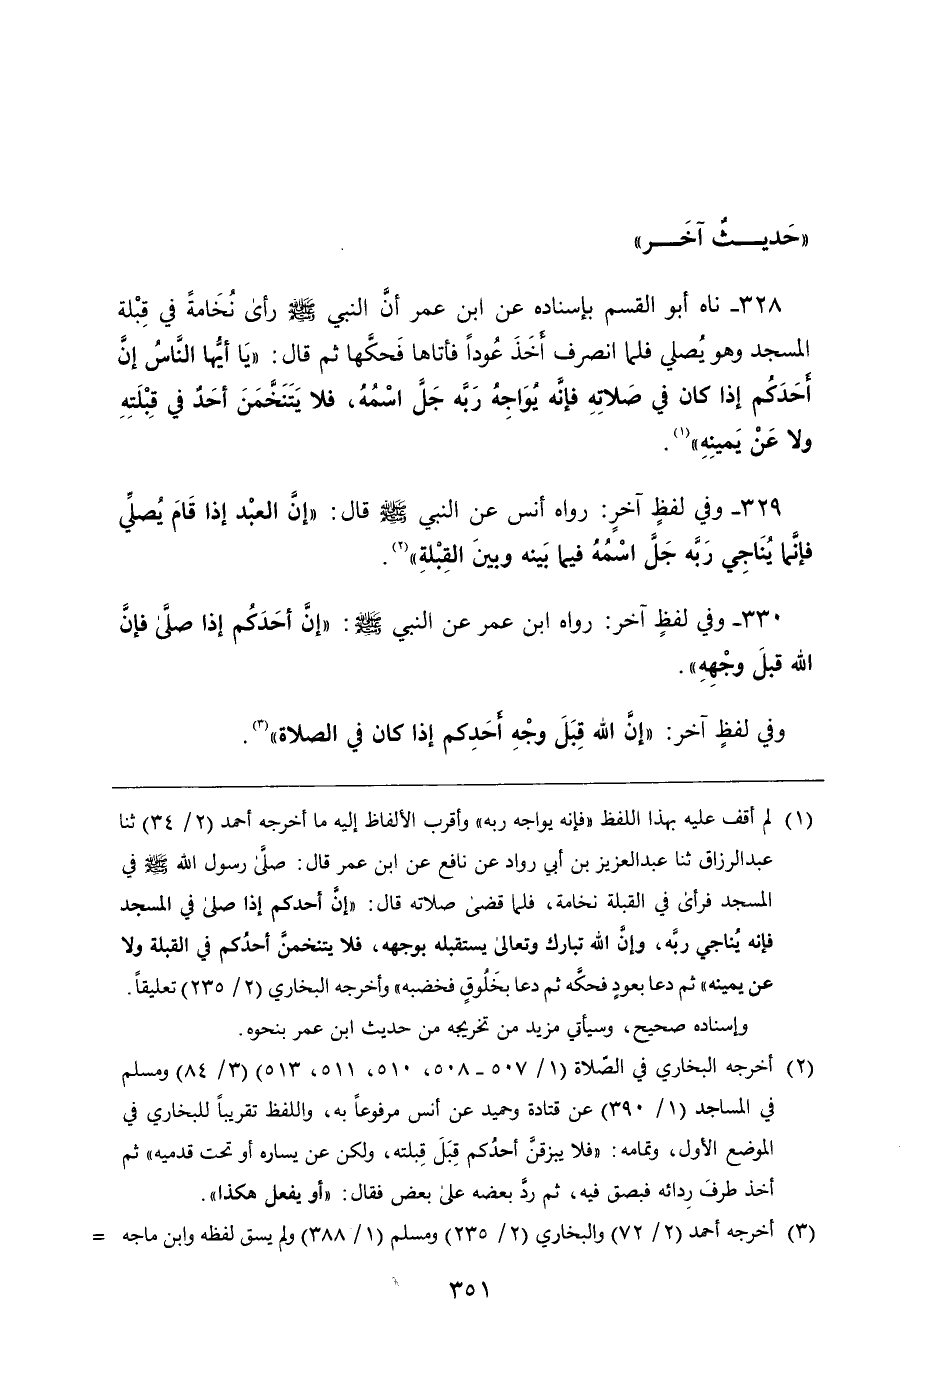 «حَديـــثٌ آخَـــر»
٣٢٨ـ ناه أبو القسم بإسناده عن ابن عمر أنَّ النبي ﷺ رأىٰ نُخَامةً في قِبْلة
المسجد وهو يُصلي فلما انصرف أَخَذَ عُوداً فأتاها فَحكَّها ثم قال: «يَا أيُّها النَّاسُ إنَّ
أَحَدَكُم إذا كان في صَلاتِهِ فإنَّه يُوَاجِهُ رَبَّه جَلَّ اسْمُهُ، فلا يَتَنَخَّمَنَ أحَدٌ في قِبْلَتِهِ
ولا عَنْ يَمينِهِ»(١).
٣٢٩ـ وفي لفظٍ آخرٍ: رواه أنس عن النبي ﷺ قال: «إنَّ العبْد إذا قَامَ يُصلِّي
فإنَّما يُنَاجِي رَبَّه جَلَّ اسْمُهُ فيما بَينه وبينَ القِبْلةِ»(٢).
٣٣٠ـ وفي لفظٍ آخر: رواه ابن عمر عن النبي ﷺ: «إنَّ أحَدَكُم إذا صلَّىٰ فإنَّ
الله قبلَ وجْهِهِ».
وفي لفظٍ آخر: «إنَّ الله قِبَلَ وجْهِ أَحَدِكم إذا كان في الصلاة»(٣).
(١) لم أقف عليه بهذا اللفظ «فإنه يواجه ربه» وأقرب الألفاظ إليه ما أخرجه أحمد (٢/ ٣٤) ثنا
عبدالرزاق ثنا عبدالعزيز بن أبي رواد عن نافع عن ابن عمر قال: صلَّىٰ رسول الله ﷺ في
المسجد فرأىٰ في القبلة نخامة، فلما قضىٰ صلاته قال: «إنَّ أحدكم إذا صلىٰ في المسجد
فإنه يُناجي ربَّه، وإنَّ الله تبارك وتعالىٰ يستقبله بوجهه، فلا يتنخمنَّ أحدُكم في القبلة ولا
عن يمينه» ثم دعا بعودٍ فحكَّه ثم دعا بخَلُوقٍ فخضبه» وأخرجه البخاري (٢/ ٢٣٥) تعليقاً.
وإسناده صحيح، وسيأتي مزيد من تخريجه من حديث ابن عمر بنحوه.
(٢) أخرجه البخاري في الصّلاة (١/ ٥٠٧ ـ ٥٠٨، ٥١٠، ٥١١، ٥١٣) (٣/ ٨٤) ومسلم
في المساجد (١/ ٣٩٠) عن قتادة وحميد عن أنس مرفوعاً به، واللفظ تقريباً للبخاري في
الموضع الأول، وتمامه: «فلا يبزقنَّ أحدُكم قِبَلَ قِبلته، ولكن عن يساره أو تحت قدميه» ثم
أخذ طرفَ رِدائه فبصق فيه، ثم ردَّ بعضه علىٰ بعض فقال: «أو يفعل هكذا».
(٣) أخرجه أحمد (٢/ ٧٢) والبخاري (٢/ ٢٣٥) ومسلم (١/ ٣٨٨) ولم يسق لفظه وابن ماجه =
٣٥١